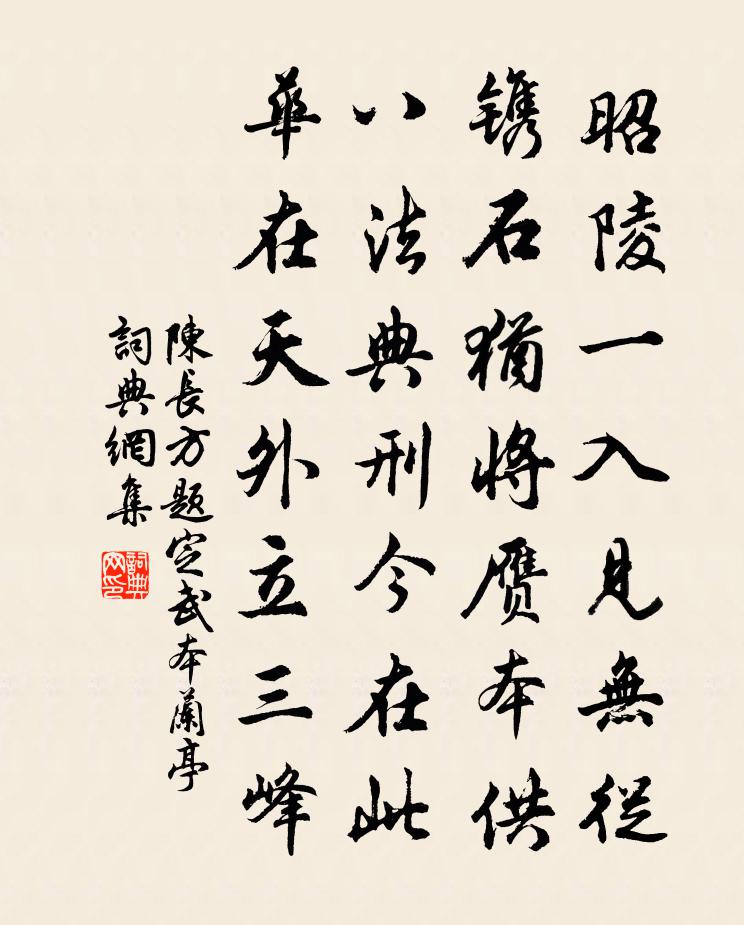 昭陵一入見無從
镌石猶將赝本供
八法典刑今在此
華在天外立三峰
陳長方題定武本蘭亭
詞典網集
詞典网印